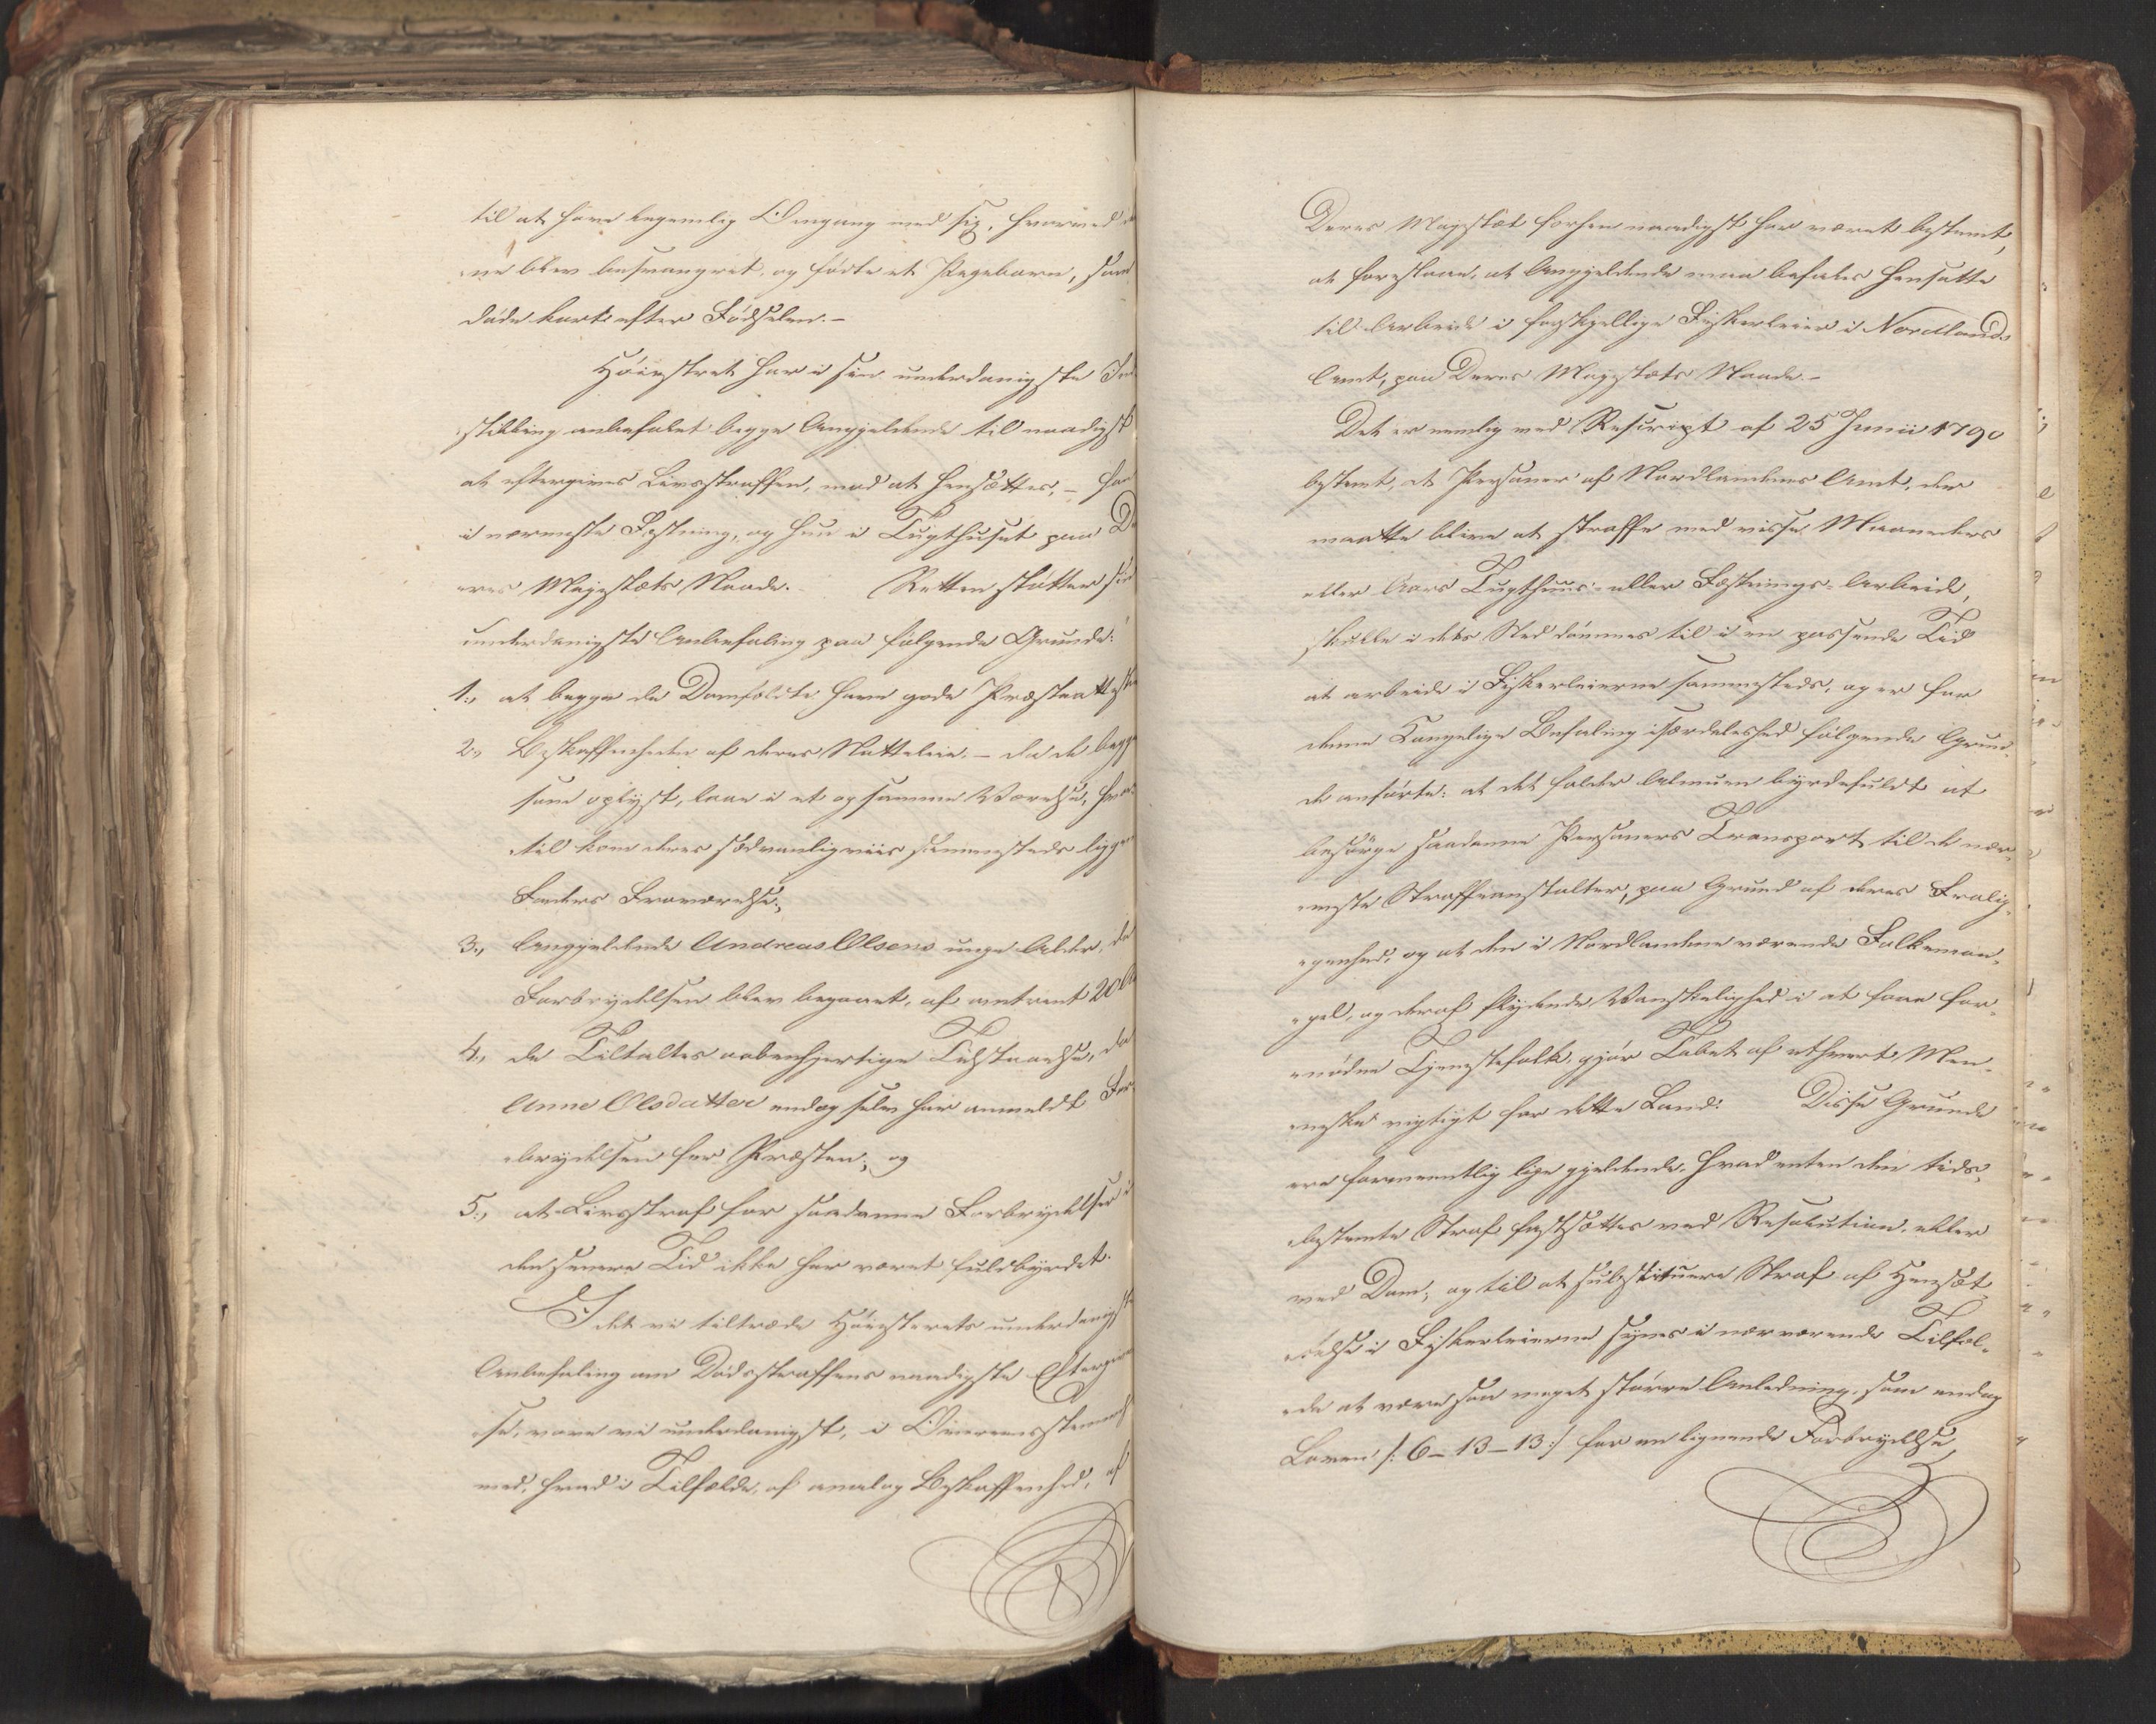 til at have legemlig Omgang med sig, hvorved
ne blev besvangret, og födte et Pigebarn, som
döde kort efter Födselen.-
Höiesteret har i sin underdanigste Ind
stilling anbefalet begge Angjeldende til naadigst
at eftergives Livsstraffen, mod at hensættes, - han
i nærmeste Fæstning, og hun i Tugthuset paa De
eres Majestæts Naade. - Retten støtter sin
underdanigste Anbefaling paa følgende Grunde:
1:, at begge de Domfældte have gode Præsteatteste
2:, Beskaffenheden af deres Natteleie, - da de begge
som oplyst, laae i et og samme Værelse, hvor
til kom deres sædvanligviis sammesteds liggen
Faders Fraværelse;
3:, Angjeldende Andreas Olsens unge Alder, da
Forbrydelsen blev begaaet, af omtrent 20 Aa
4:, de Tiltaltes aabenhjertige Tilstaaelse, da
Anne Olsdatter endog selv har anmeldt For
brydelsen for Præsten; og
5:, at Livsstraf for saadanne Forbrydelser i
den senere Tid ikke har været fuldbyrdet.
Idet vi tiltræde Höiesterets underdanigste
Anbefaling om Dödsstraffens naadigste Eftergivel
se, vove vi underdanigst, i Overeensstemmelse
med, hvad i Tilfælde, af analog Beskaffenhed, af
Deres Majestæt forhen naadigst har været bestemt,
at foreslaae, at Angjeldende maa befales hensatte
til Arbeide i forskjellige Fiskerleier i Nordlands
Amt, paa Deres Majestæts Naade.-
Det er nemlig ved Rescript af 25 Junii 1790
bestemt, at Personer af Nordlandenes Amt, der
maatte blive at straffe med visse Maaneders
eller Aars Tugthuus- eller Fæstnings-Arbeide,
skulle i dets Sted dömmes til i en passende Tid
at arbeide i Fiskerleierne sammesteds, og er for
denne Kongelige Befaling isærdeleshed følgende Grun-
de anförte: at det falder Almuen byrdefuldt at
besörge saadanne Personers Transport til de nær-
meste Straffeanstalter, paa Grund af deres Fralig-
genhed, og at den i Nordlandene værende Folkeman-
gel, og deraf flydende Vanskelighed i at faae for-
nødne Tjenestefolk, gjør Tabet af ethvert Men-
neske vigtigt for dette Land: Disse Grunde
ere formeentlig lige gjeldende, hvad enten den tids-
bestemte Straf fastsættes ved Resolution, eller
ved Dom; og til at substituere Straf af Hensæt-
telse i Fiskerleierne synes i nærværende Tilfæl-
de at være saa meget större Anledning, som endog
Loven /: 6-13-13:/ for en lignende Forbrydelse